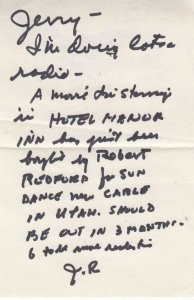 Jerry -
I'm doing lots a
radio -
A movie I'm starring
in HOTEL MANOR
INN has just been
bought by Robert
REDFORD for SUN
DANCE new CABLE
IN UTAH. SHOULD
BE OUT IN 3 MONTHS.
6
J.R